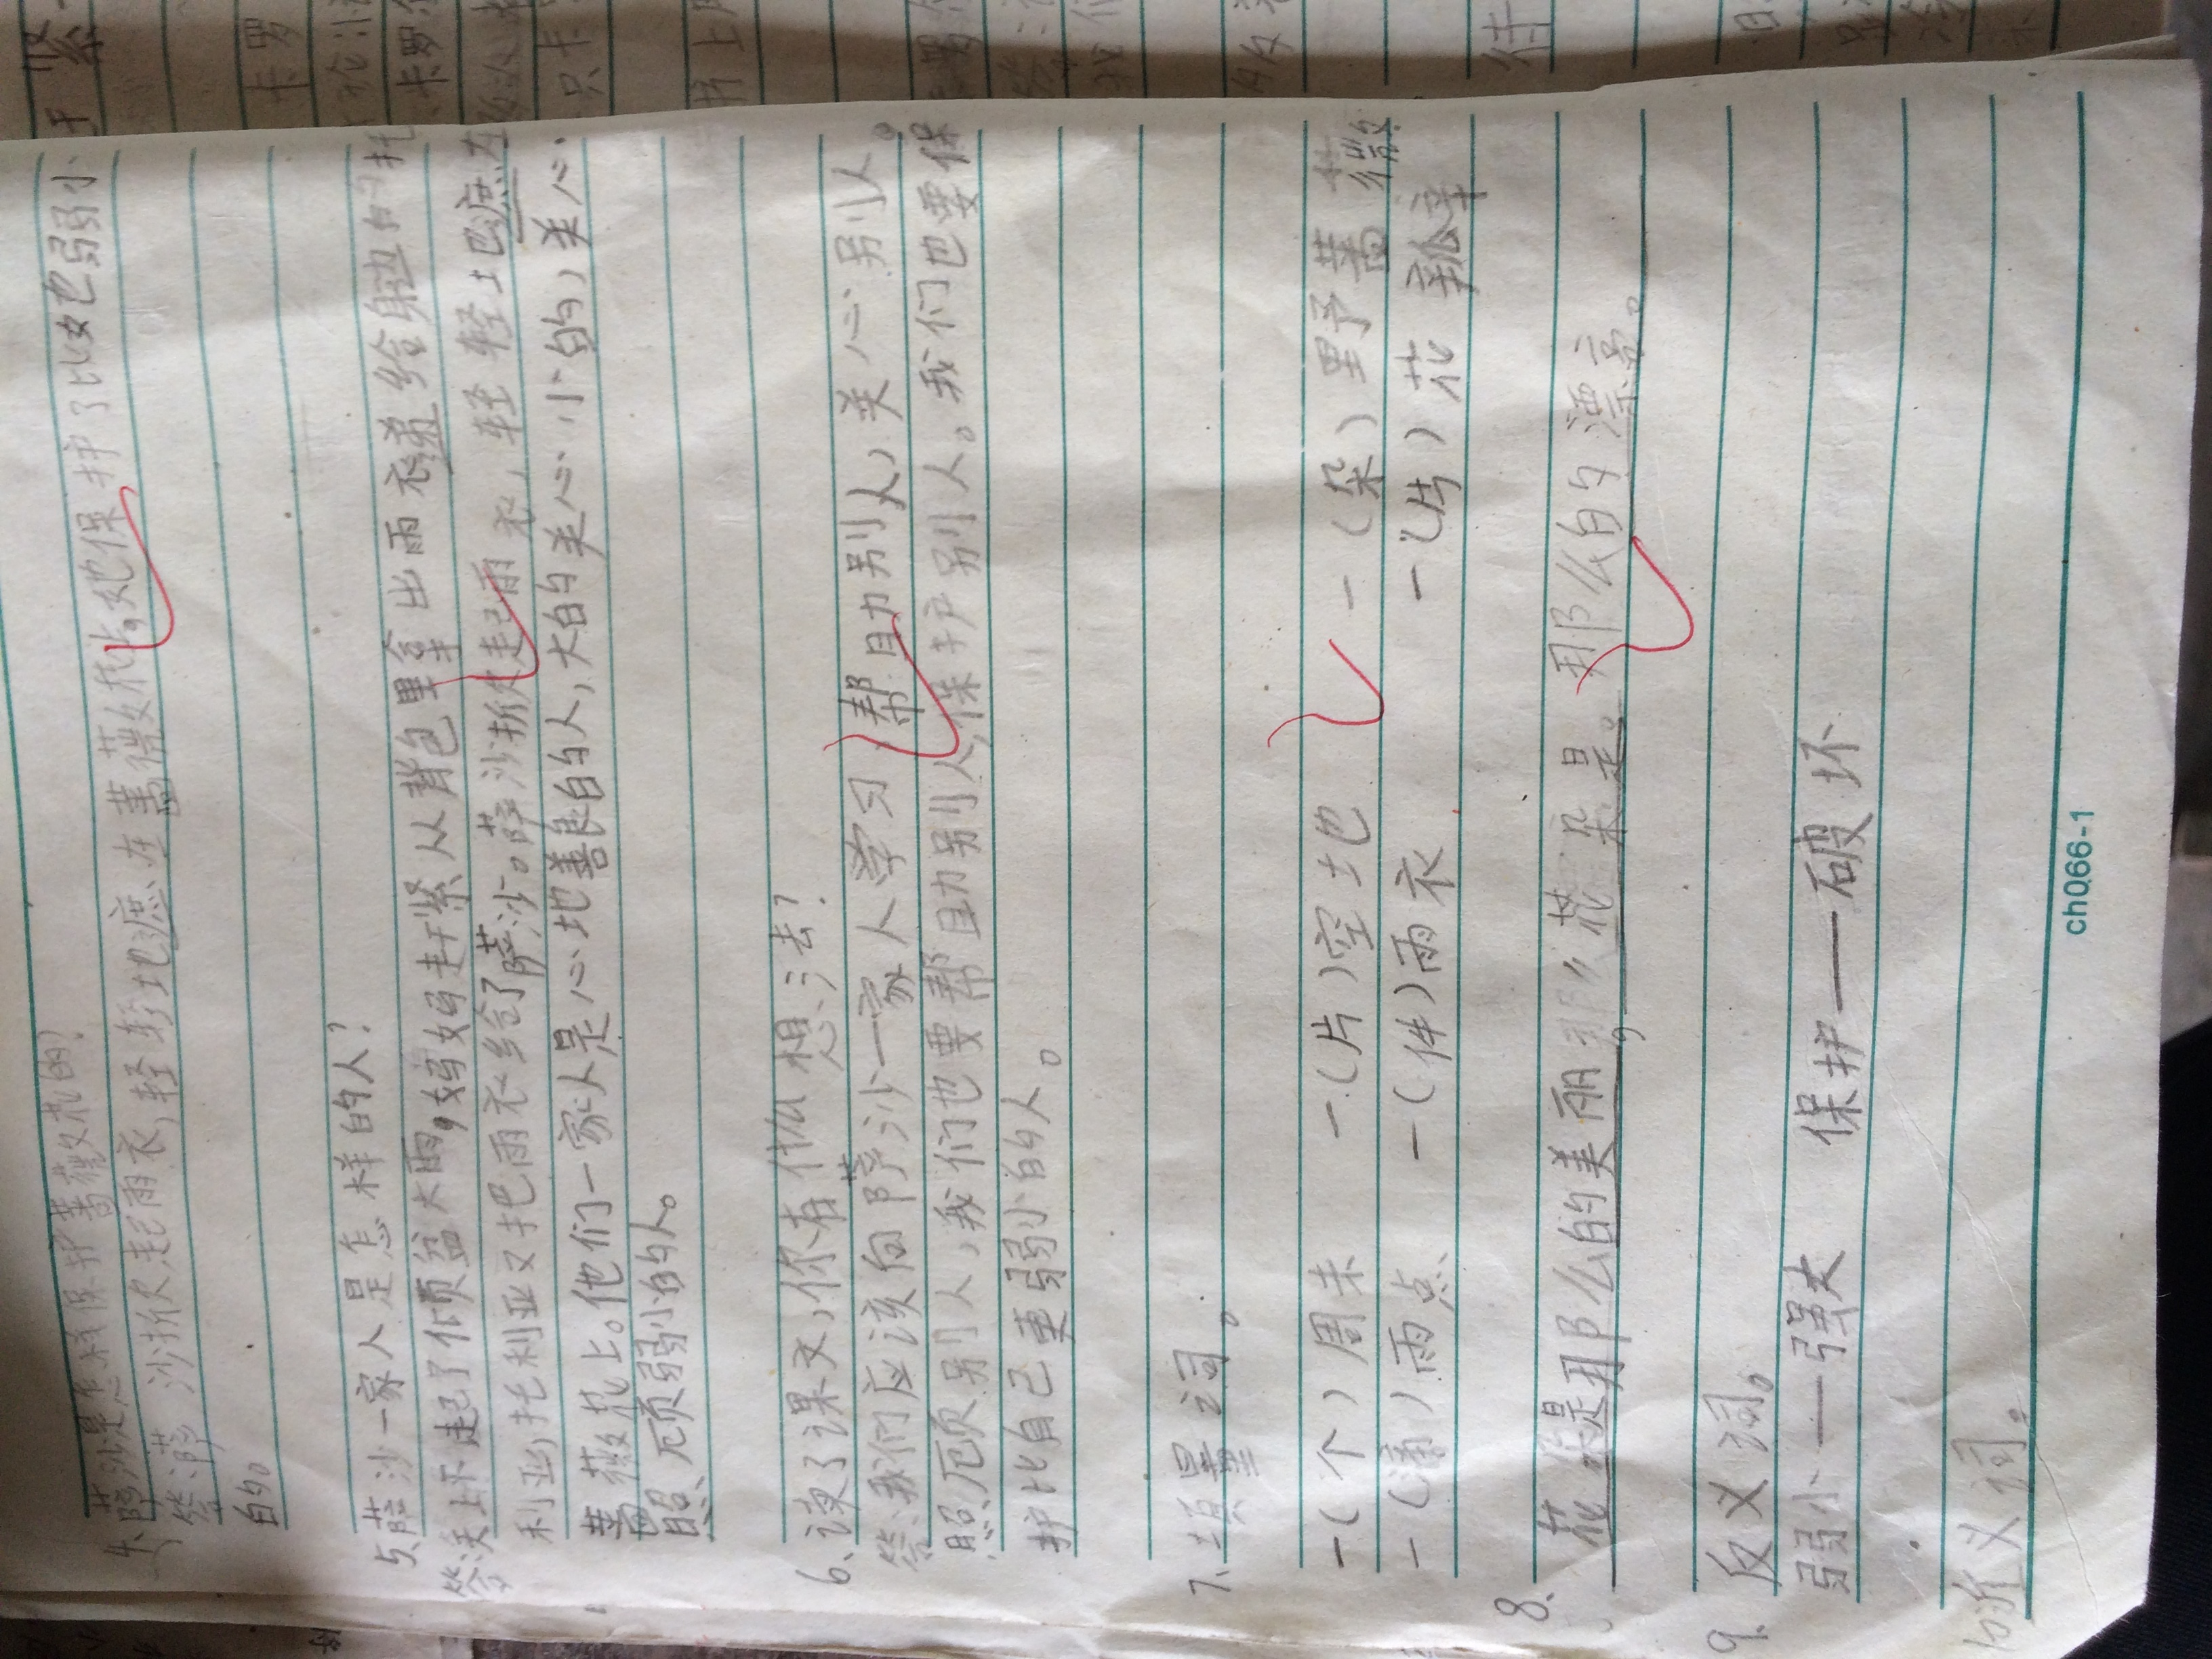 4、萨沙是怎样保护蔷薇花的?
答:萨沙掀起雨衣,轻轻地遮在蔷薇花上。她保护了比她弱小
的。
5、萨沙一家人是怎样的人?
答:天上下起了倾盆大雨,妈妈赶紧从背包里拿出雨衣递给身边的托
利亚,托利亚又把雨衣给了萨沙。萨沙掀起雨衣,轻轻地遮在
蔷薇花上。他们一家人是心地善良的人,大的关心小的,关心
照顾弱小的人。
6、读了课文,你有什么想法?
答:我们应该向萨沙一家人学习,帮助别人,关心别人。
照顾别人,我们也要帮助别人,保护别人。我们也要保
护比自己更弱小的人。
7、填量词。
一(个)周末 一(片)空地 一(朵)野蔷薇
一(滴)雨点 一(件)雨衣 一(片)花瓣
8、花朵是那么的美丽,那么 花朵是。那么的漂亮。
9、反义词。
弱小——强大 保护——破坏
10近义词。
ch066-1